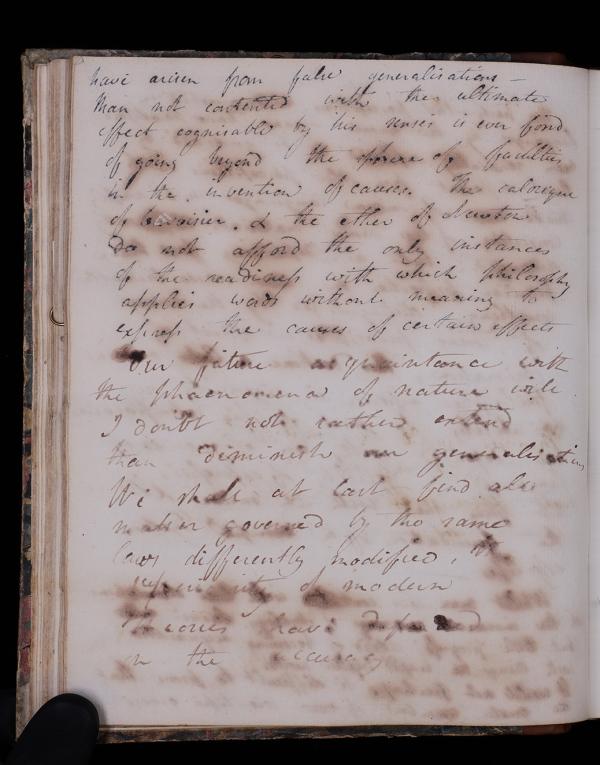 have arisen from false generalisations —
Man not contented with the ultimate
effect cognisable by his senses is ever fond
of going beyond the sphere of faculties
in the invention of causes. The calorique
of Lavoisier. & the ether of Newton
do not afford the only instances
of the readiness with which philosophy
applies words without meaning to
express the causes of certain effects
Our future acquaintance with
the phaenomena of nature will
I doubt not rather extend
than diminish our generalisations
We shall at last find all
matter governed by the same
laws differently modified,
of modern
theories have
on the accuracy